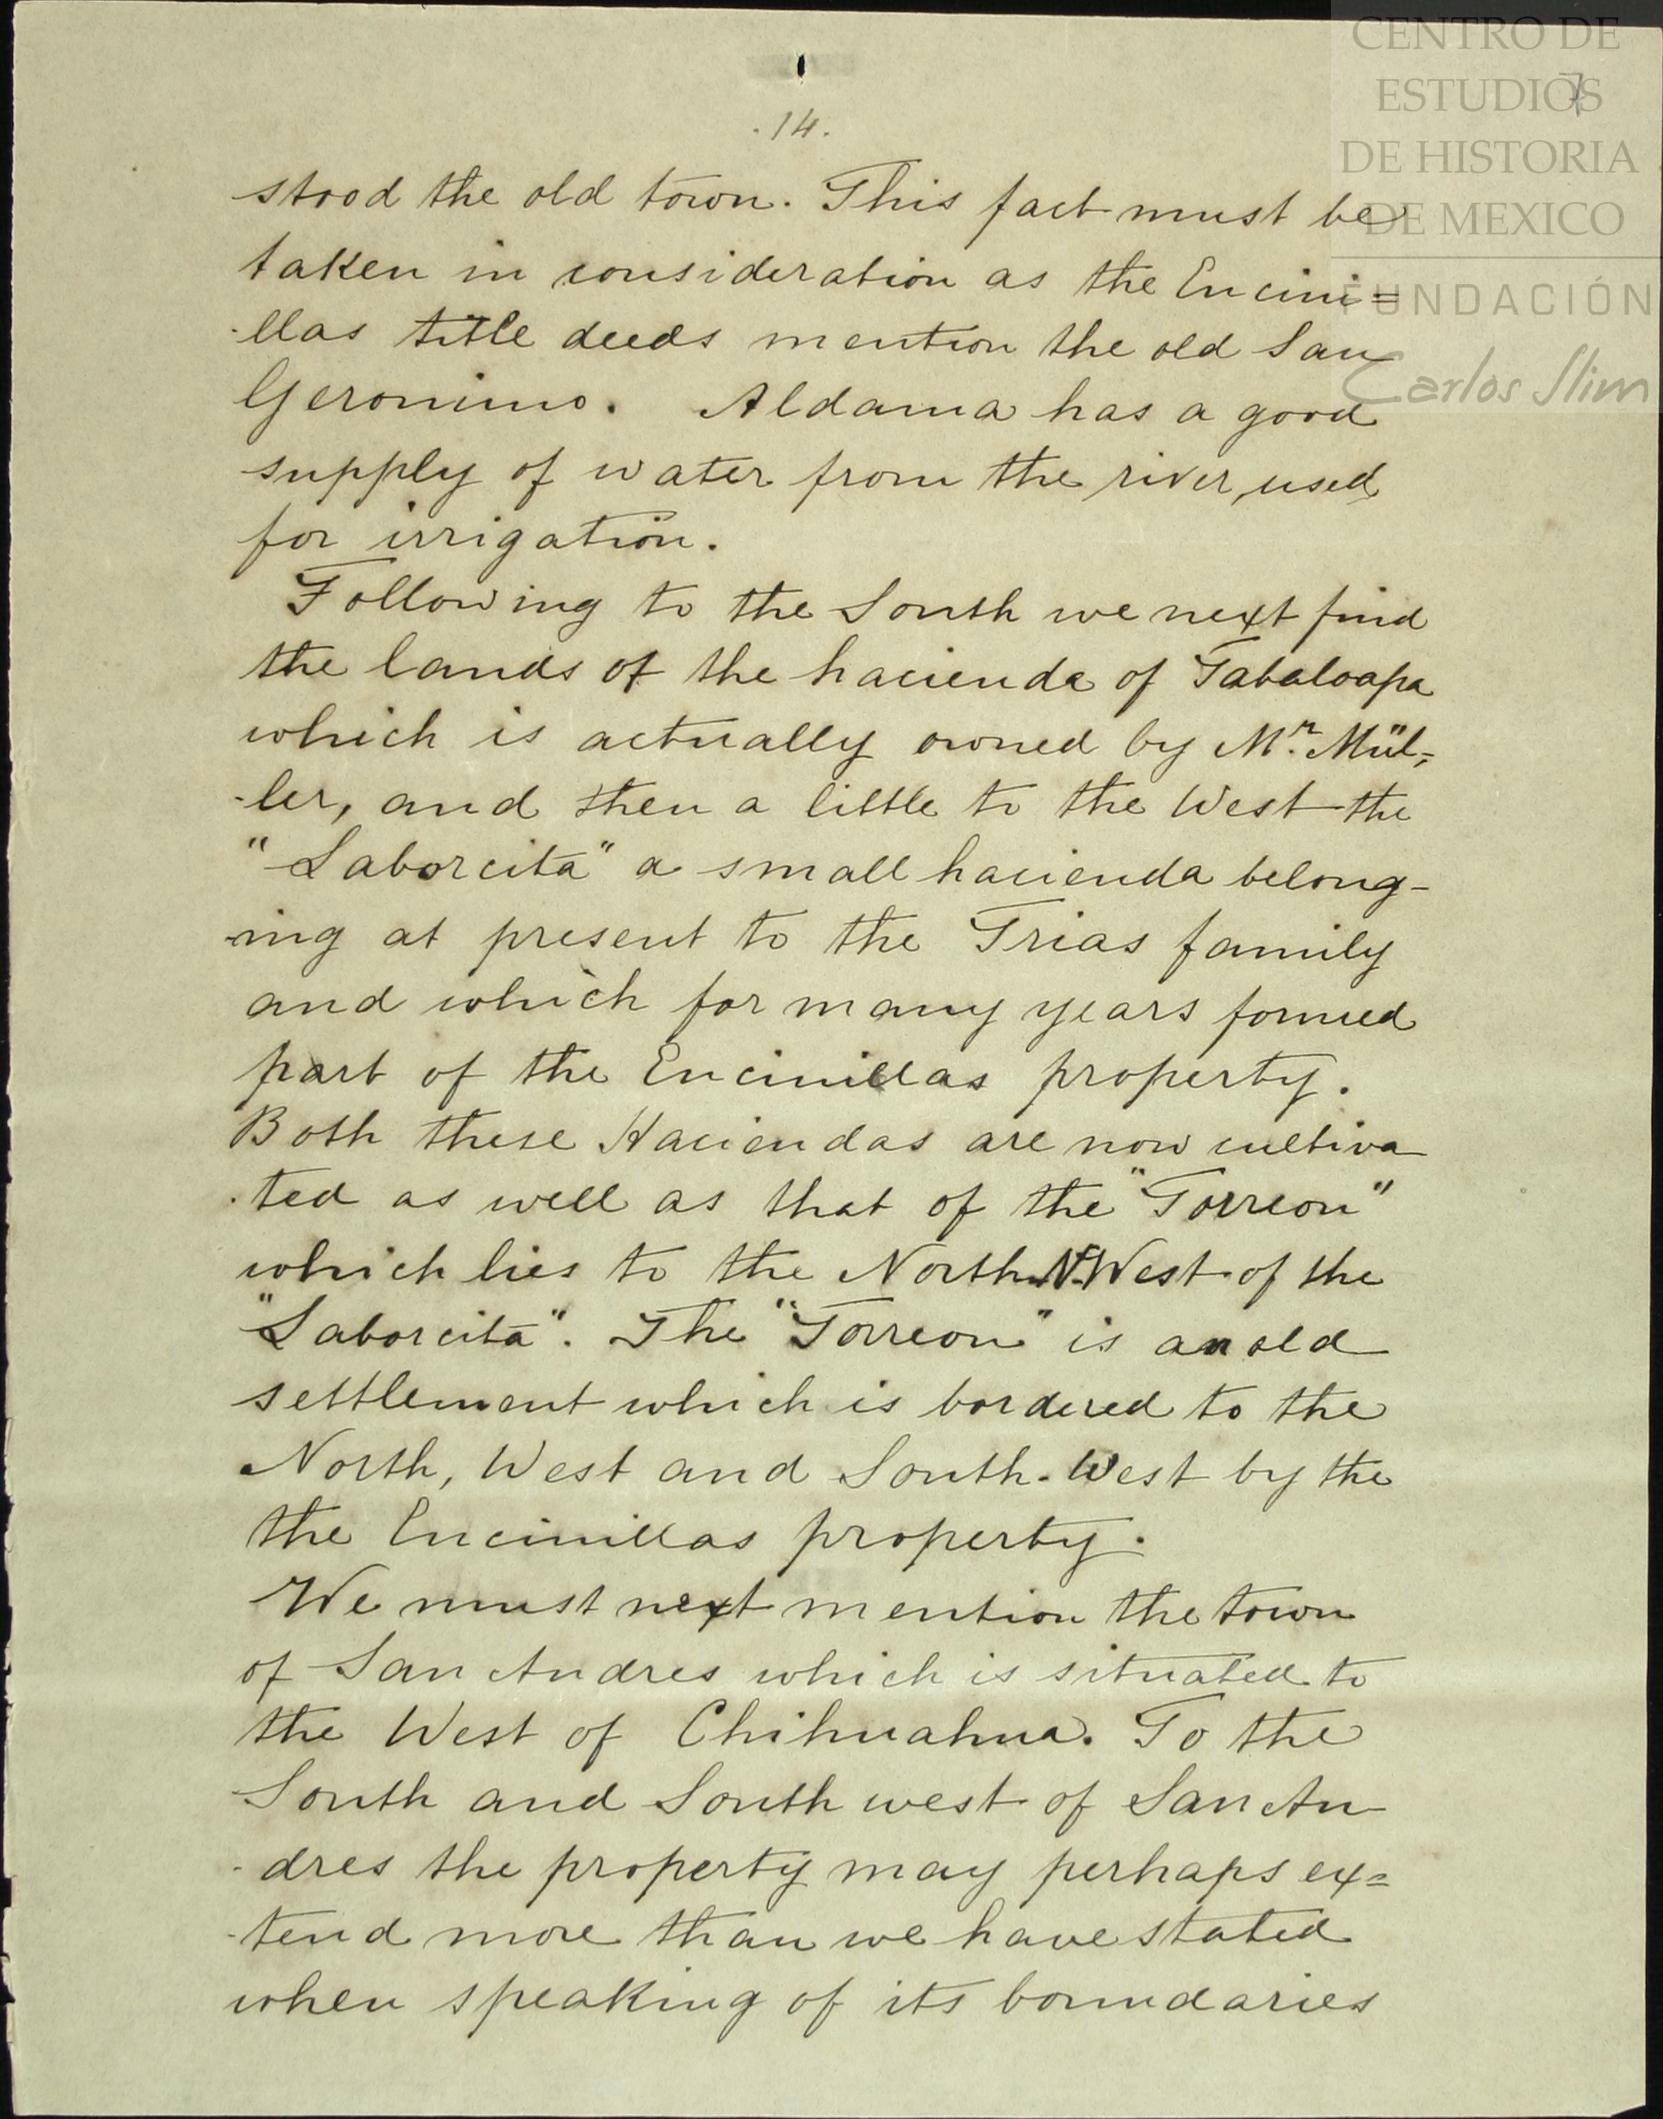 CENTRO DE
ESTUDIOS
DE HISTORIA
DE MEXICO
FUNDACIÓN
Carlos Slim
7
.14.
stood the old town. This fact must be
taken in consideration as the Encini=
-llas title deeds mention the old San
Geronimo. Aldama has a good
supply of water from the river, used
for irrigation.
Following to the South we next find
the lands of the hacienda of Tabaloapa
which is actually owned by Mr. Mül=
-ler, and then a little to the West the
"Laborcita" a small hacienda belong-
-ing at present to the Trias family
and which for many years formed
part of the Encinillas property.
Both these Haciendas are now cultiva
-ted as well as that of the "Torreon"
which lies to the North N. West of the
"Laborcita". The "Torreon" is an old
settlement which is bordered to the
North, West and South-West by the
the Encinillas property.
We must next mention the town
of San Andres which is situated to
the West of Chihuahua. To the
South and South west of San An
-dres the property may perhaps ex=
-tend more than we have stated
when speaking of its boundaries